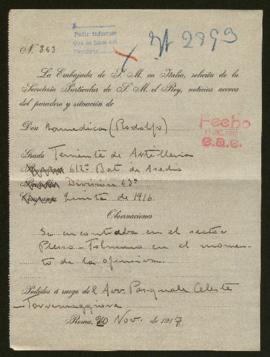 Pedir informes
N. 343
La Embajada de S. M. en Italia, solicita de la
Secretaría Particular de S. M. el Rey, noticias acerca
del paradero y situación de
Don (Rodolfo)
Grado Teniente de Artilleria
612a Bat. de Asedio
Divisione 63a
1916
Fecho
e.a.e.
Observaciones
Se encontraba en el sector
Plezzo - Tolmino en el momen-
to de la ofensiva
Pedidos a ruego del Avv. Pasquale Celeste
Torremaggiore
Roma, 20 Nov. de 1917